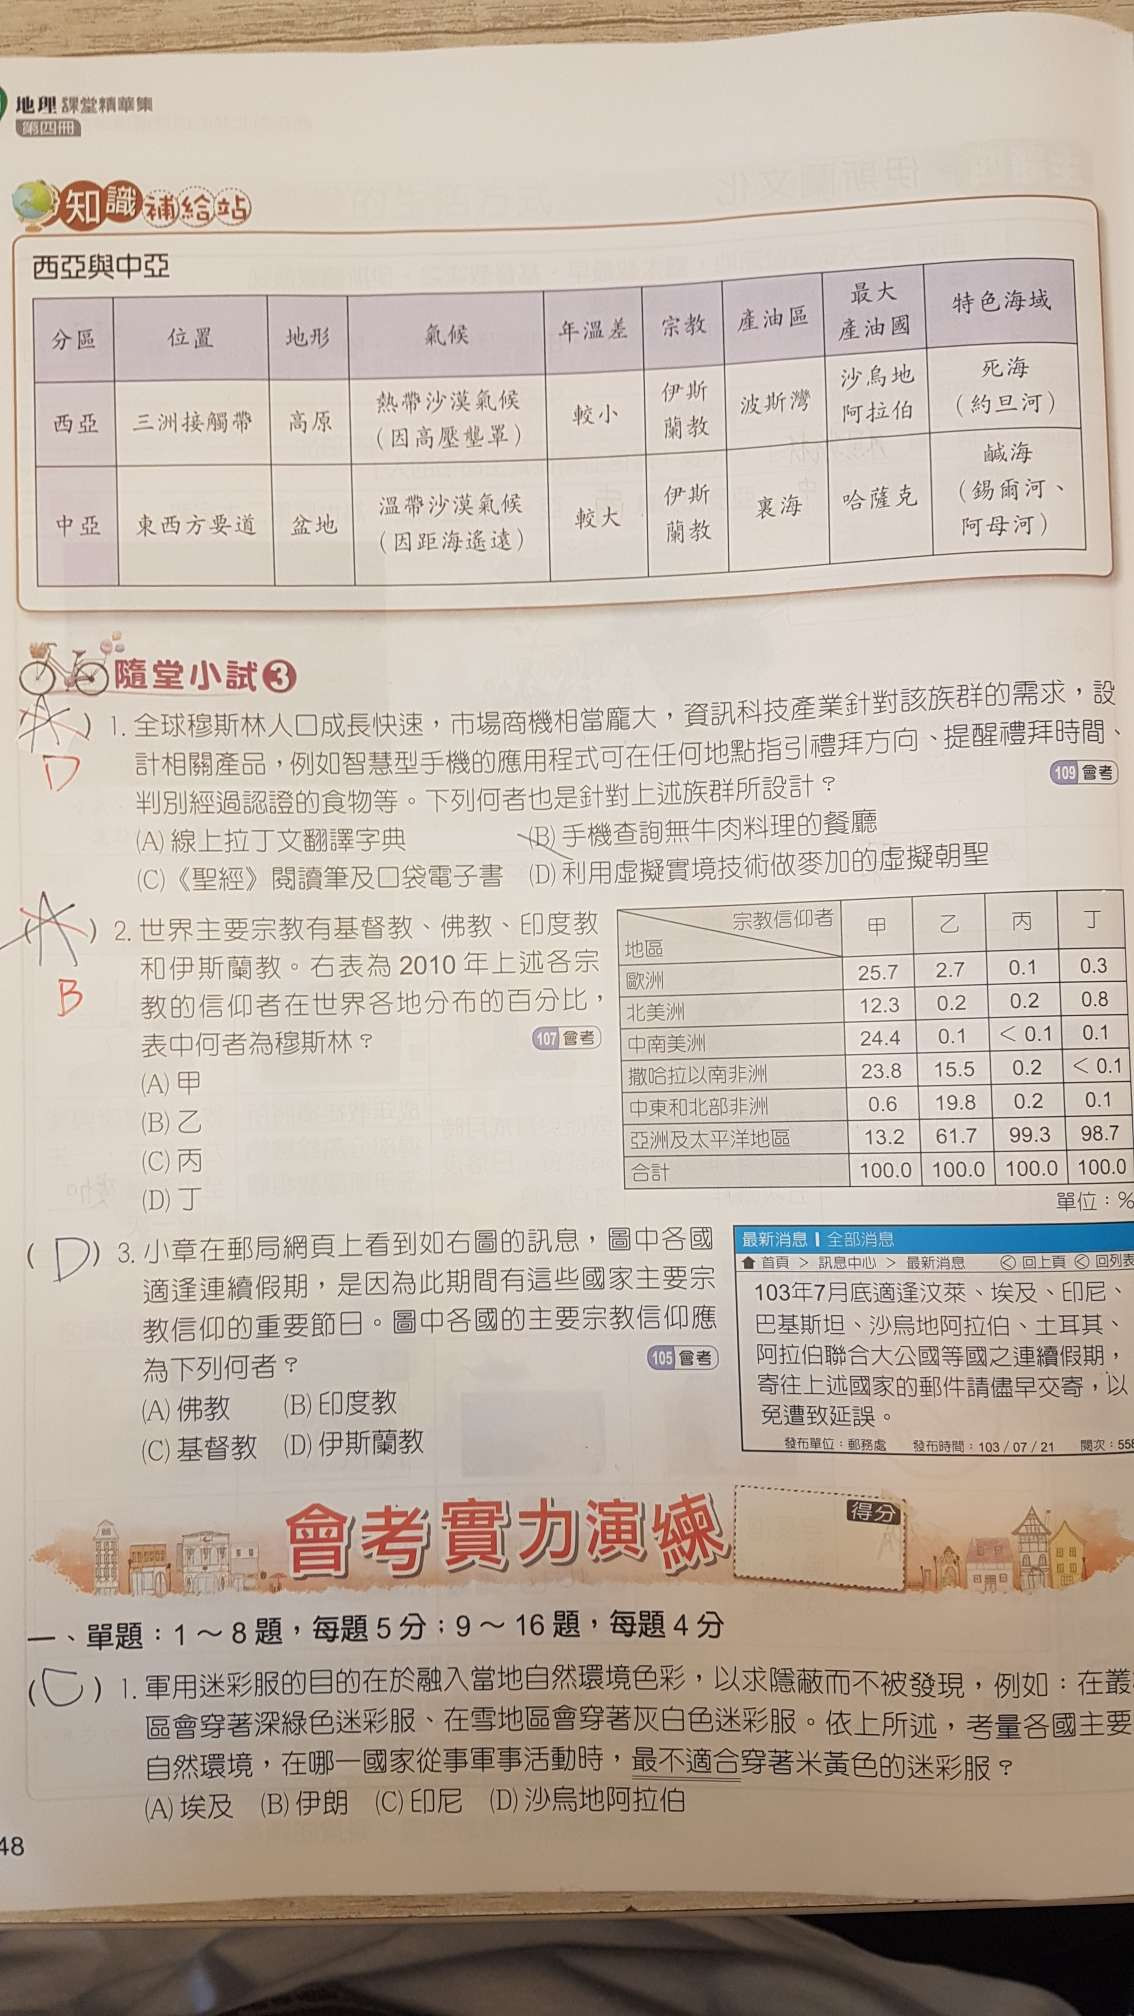 地理 課堂精華集
第四冊
知識補給站
西亞與中亞
分區 位置 地形 氣候 年溫差 宗教 產油區 最大產油國 特色海域
西亞 三洲接觸帶 高原 熱帶沙漠氣候（因高壓壟罩） 較小 伊斯蘭教 波斯灣 沙烏地阿拉伯 死海（約旦河）
中亞 東西方要道 盆地 溫帶沙漠氣候（因距海遙遠） 較大 伊斯蘭教 裏海 哈薩克 鹹海（錫爾河、阿母河）
隨堂小試3
(A) 1. 全球穆斯林人口成長快速，市場商機相當龐大，資訊科技產業針對該族群的需求，設
D 計相關產品，例如智慧型手機的應用程式可在任何地點指引禮拜方向、提醒禮拜時間、
判別經過認證的食物等。下列何者也是針對上述族群所設計？ 109 會考
(A) 線上拉丁文翻譯字典 (B) 手機查詢無牛肉料理的餐廳
(C)《聖經》閱讀筆及口袋電子書 (D) 利用虛擬實境技術做麥加的虛擬朝聖
(A) 2. 世界主要宗教有基督教、佛教、印度教
和伊斯蘭教。右表為 2010 年上述各宗
B 教的信仰者在世界各地分布的百分比，
表中何者為穆斯林？ 107 會考
(A) 甲
(B) 乙
(C) 丙
(D) 丁
宗教信仰者 地區 甲 乙 丙 丁
歐洲 25.7 2.7 0.1 0.3
北美洲 12.3 0.2 0.2 0.8
中南美洲 24.4 0.1 ＜0.1 0.1
撒哈拉以南非洲 23.8 15.5 0.2 ＜0.1
中東和北部非洲 0.6 19.8 0.2 0.1
亞洲及太平洋地區 13.2 61.7 99.3 98.7
合計 100.0 100.0 100.0 100.0
單位：%
(D) 3. 小章在郵局網頁上看到如右圖的訊息，圖中各國
適逢連續假期，是因為此期間有這些國家主要宗
教信仰的重要節日。圖中各國的主要宗教信仰應
為下列何者？ 105 會考
(A) 佛教 (B) 印度教
(C) 基督教 (D) 伊斯蘭教
最新消息 | 全部消息
首頁 > 訊息中心 > 最新消息 回上頁 回列表
103年7月底適逢汶萊、埃及、印尼、
巴基斯坦、沙烏地阿拉伯、土耳其、
阿拉伯聯合大公國等國之連續假期，
寄往上述國家的郵件請儘早交寄，以
免遭致延誤。
發布單位：郵務處 發布時間：103 / 07 / 21 閱次：558
會考實力演練
得分
一、單題：1～8 題，每題 5 分；9～16 題，每題 4 分
(C) 1. 軍用迷彩服的目的在於融入當地自然環境色彩，以求隱蔽而不被發現，例如：在叢
區會穿著深綠色迷彩服、在雪地區會穿著灰白色迷彩服。依上所述，考量各國主要
自然環境，在哪一國家從事軍事活動時，最不適合穿著米黃色的迷彩服？
(A) 埃及 (B) 伊朗 (C) 印尼 (D) 沙烏地阿拉伯
48